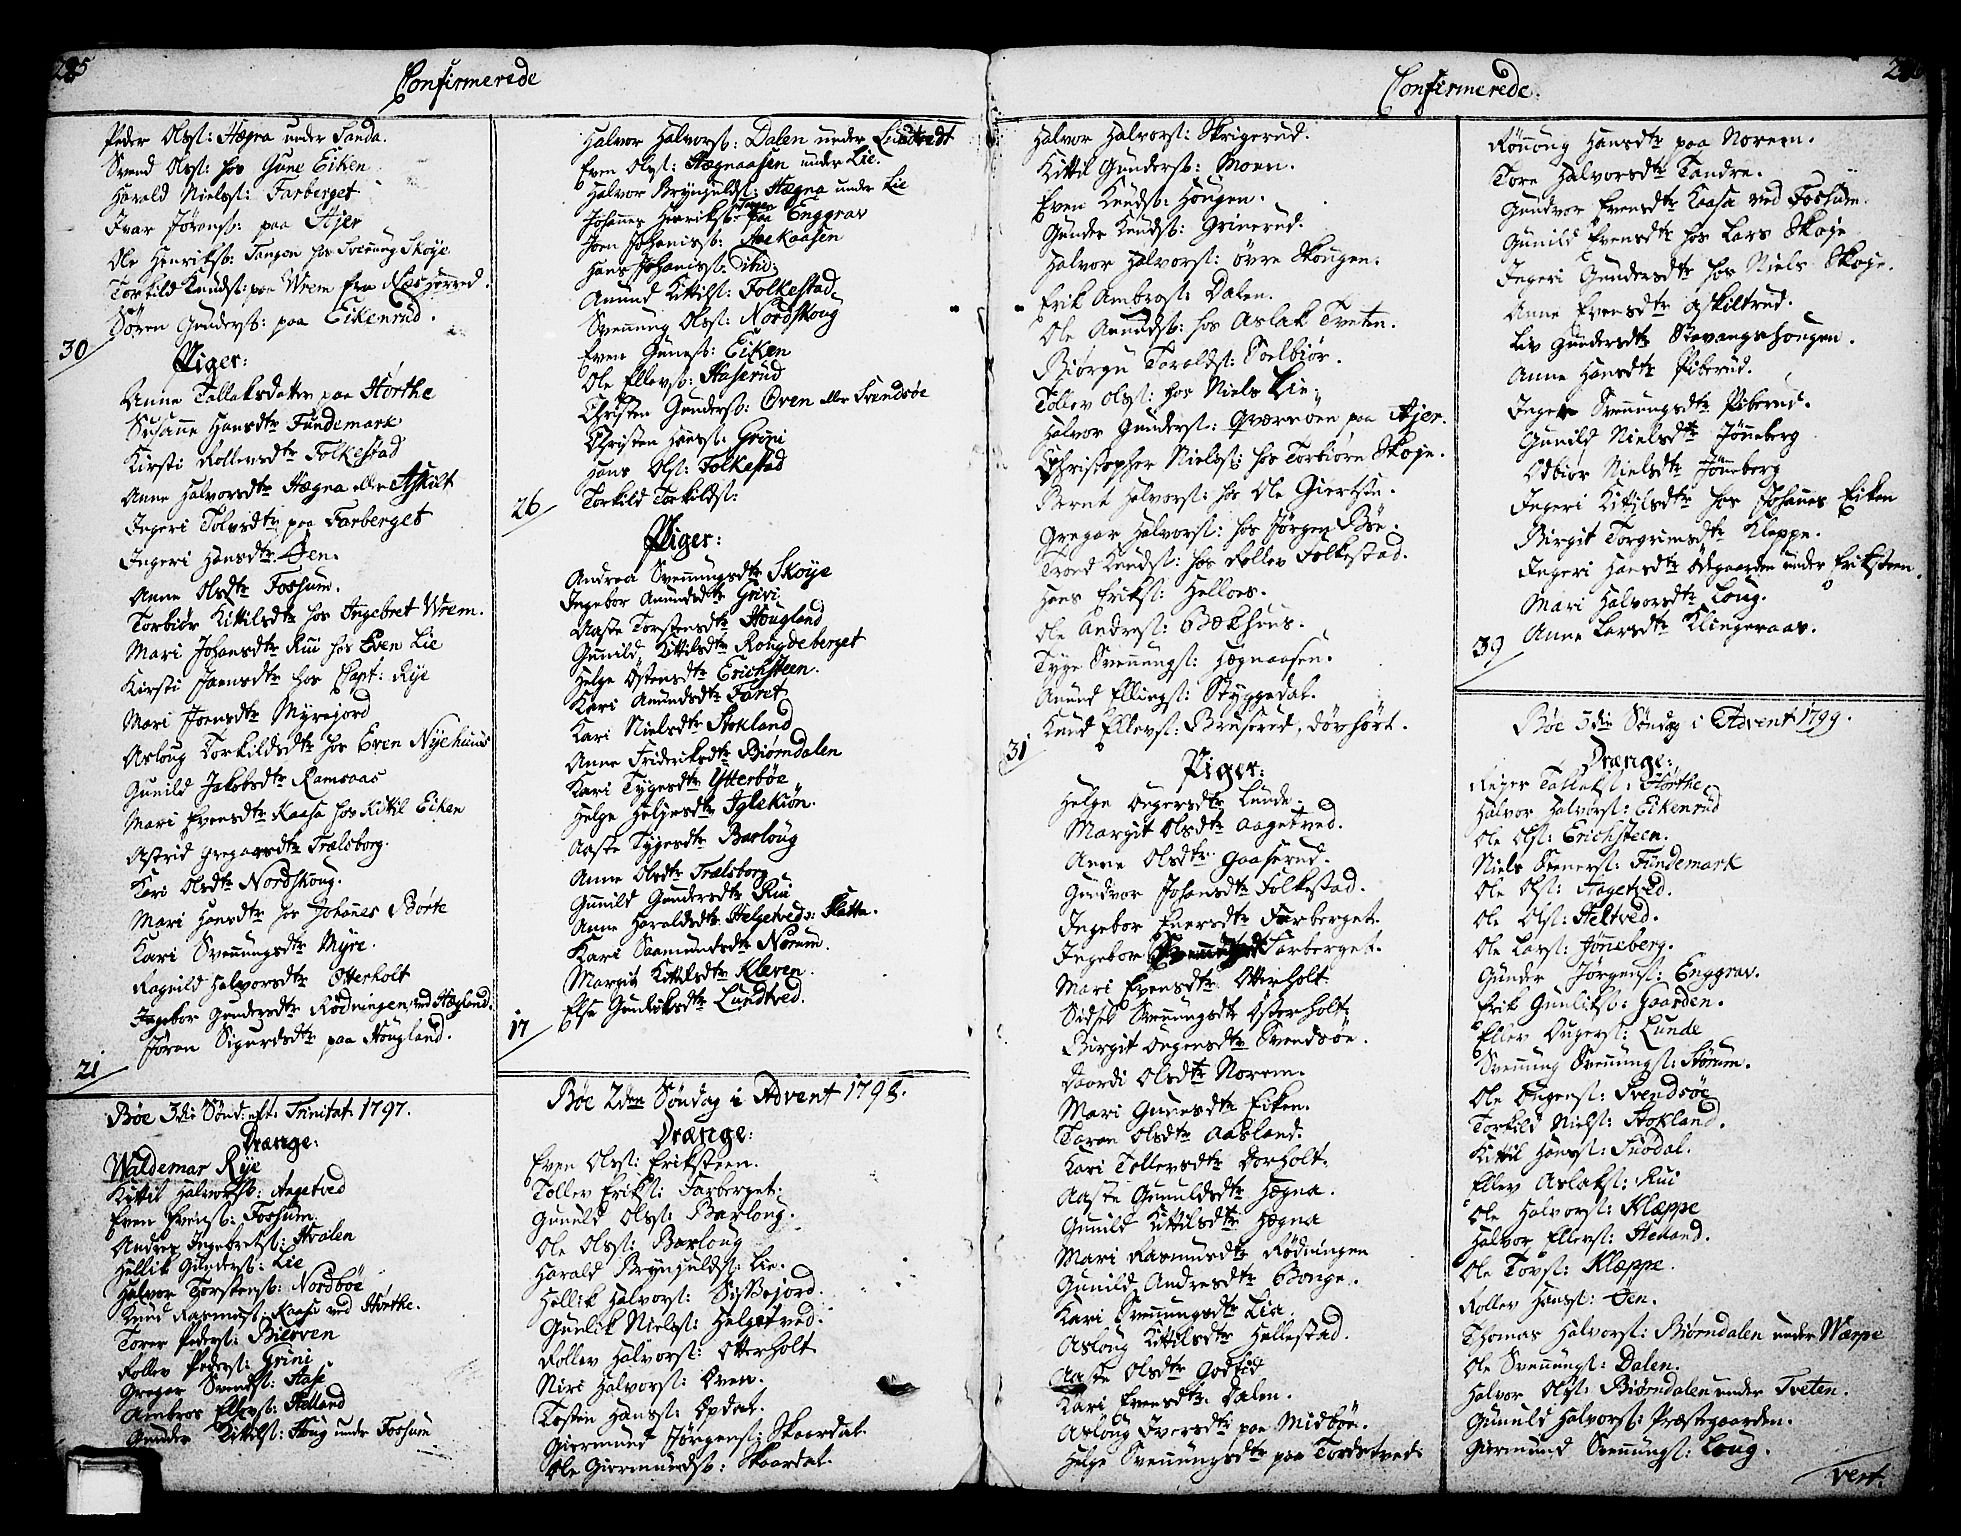 Confirmerede
Peder Olss: Hægna under Sanda.
Svend Olss: hos Gune Eiken
Harald Nielss: Farberget
Ivar Jørens: paa Ajer
Ole Henrikss: Tangen hos Svennug Skoye
Torkild Knuds: paa Wrem fra Næsherred.
Søren Gunders: paa Eikenrud.
30
Piger:
Anne Tallaksdatter paa Hørthe
Susanne Hansdtr Fundemark
Kirsti Rollevsdtr Folkestad
Anne Halvorsdtr Hægna eller Askilt
Ingeri Tolvsdtr paa Farberget
Ingeri Hansdtr Øen.
Anne Olsdtr Fossum.
Torbiør Kittilsdtr hos Ingebret Wrem.
Mari Johansdtr Rui hos Even Lie
Kirsti Joensdtr hos Capt: Rye
Mari Joensdtr Myrejord
Asloug Torkildsdtr hos Even Nyehuus
Gunild Jakobsdtr Ramsaas
Mari Evensdtr Kaasa hos Kittil Eiken
Astrid Gregarsdtr Trælsborg.
Kari Olsdtr Nordskoug.
Mari Hansdtr hos Johannes Børte
Kari Svennungsdtr Myre.
Ragnild Halvorsdtr Otterholt
Ingebor Gundersdtr Rødningen ved Hægland.
Jøran Sigurdsdtr paa Hougland.
21
Bøe 3die Sønd: eft: Trinitat: 1797.
Drænge:
Waldemar Rye
Kittil Halvorss: Aagetved
Even Evens: Fossum.
Andres Ingebrets: Hvalen
Hellik Gunders: Lie
Halvor Torstens: Nordbøe
Knud Rasmuss: Kaasa ved Hørthe.
Tores Peders: Bierven
Rollev Peders: Grini
Gregar Svends: Hase
Ambros Ellevs: Helland
Gunder Kittils: Houg under Fossum
Halvor Halvorss: Dalen under Lundtvedt
Even Olss: Hægnaasen under Lie.
Halvor Brynjulds: Hægna under Lie
Johannes Henrikss: Tangen paa Enggrav
Joen Johaniss: Aaekaasen
Hans Johaniss: ibid:
Anund Kittils: Folkestad
Svennug Olss: Nordskoug
Even Guness: Eiken
Ole Ellevs: Haserud
Christen Gunders: Oven eller Svendsøe
Christen Hanss: Grini
Hans Ols: Folkestad
Torkild Torkilds:
26
Piger:
Andrea Svennungsdtr Skoye
Ingebor Anundsdtr Grivi
Aaste Torstensdtr Hougland
Gunild Kittilsdtr Rougdeberget
Helge Østensdtr Erichsteen.
Kari Anundsdtr Faret
Kari Nielsdtr Stokland
Anne Frideriksdtr Biørndalen
Kari Tygesdtr Ytterbøe
Helge Helgesdtr Iglekiøn.
Aaste Tygesdtr Barloug
Anne Olsdtr Trælsborg
Gunild Gundersdtr Rui
Anne Haraldsdtr Helgetveds: Slatta.
Kari Saamundsdtr Norum.
Margit Kittilsdtr Kleven.
Else Gunliksdtr Lundtved.
17
Bøe 2den Søndag i Advent 1798.
Drænge:
Even Olss: Eriksteen.
Tollev Eriks: Farberget.
Gunuld Olss: Barloug.
Ole Olss: Barloug
Harald Brynjulds: Lie.
Hellik Halvorss: Sisbejord.
Gunlik Nielss: Helgetved.
Rollev Halvorss: Otterholt
Niri Halvorss: Oven.
Tosten Hanss: Opdal.
Giermund Jørgens: Skaardal.
Ole Giermunds: Skaardal.
Confirmerede.
Halvor Halvorss: Skrigerud.
Kittil Gunders: Moen.
Even Knuds: Hougen.
Gunder Knuds: Grinerud.
Halvor Halvorss: øvre Skougen.
Erik Ambros: Dalen.
Ole Anunds: hos Aslak Tveten.
Biørgu Taralds: Soelbiør.
Tollev Olss: hos Niels Lie.
Halvor Gunders: Qværnøen paa Ajer.
Christopher Nielss: hos Torbiørn Skoje.
Bernt Halvors: hos Ole Giertsen.
Gregar Halvors: hos Jørgen Bøe.
Trond Knuds: hos Rollev Folkestad.
Hans Eriks: Helloes.
Ole Andres: Bækhuus.
Tyge Svennungs: Hægnaasen.
Anund Ellings: Styggedal.
Knud Ellevs: Bruserud, døvhørt.
31
Piger:
Helge Ougersdtr Lunde.
Margit Olsdtr Aagetved.
Anne Olsdtr Gaaserud.
Gundvor Johansdtr Folkestad.
Ingebor Evensdtr Farberget.
Ingebor Farberget.
Mari Evensdtr Otterholt
Sidsel Svennungsdtr Østerholt.
Birgit Ougensdtr Svendsøe.
Gaardi Olsdtr Norem.
Mari Gunesdtr Eiken.
Taran Olsdtr Aasland.
Kari Tollevsdtr Dorholt.
Aaste Gunuldsdtr Hægna.
Gunild Kittilsdtr Hægna
Mari Rasmusdtr Rødningen
Gunild Andresdtr Bonge.
Kari Svennungsdtr Lia.
Asloug Kittilsdtr Hellestad.
Aaste Olsdtr Godtid
Kari Evensdtr Dalen.
Asloug Iversdtr paa Midbøe.
Helge Svennungsdtr paa Tordstved.
Rønnoug Hansdtr paa Norem.
Tore Halvorsdtr Tandre.
Gundvor Evensdtr Kaasa ved Fossum.
Gunild Evensdtr hos Lars Skoje
Ingeri Gundersdtr hos Niels Skoje.
Anne Evensdtr Askiltrud.
Liv Gundersdtr Stavangshougen.
Anne Hansdtr Piberud.
Inger Svennungsdtr Piberud.
Gunild Nielsdtr Jønneberg
Odbior Nielsdtr Jønneberg
Ingeri Kittilsdtr hos Johannes Eiken
Birgit Torgrimsdtr Kleppe.
Ingeri Hansdtr Ødegaarden under Eriksteen.
Mari Halvorsdtr Loug.
Anne Larsdtr Klingeraas.
39
Bøe 3die Søndag i Advent 1799.
Drænge:
Rejer Tallaks: Hørthe
Halvor Halvorss: Eikenrud
Ole Ols: Erichsteen.
Niels Steners: Fundemark
Ole Ols: Aagetved.
Ole Ols: Heltved.
Ole Lars: Jønneberg.
Gunder Jørgens: Enggrav.
Erik Gunliks: Gaarden.
Ellev Ougers: Lunde
Svennung Svennungs: Størum.
Ole Ougens: Svendsøe
Torkild Niels: Stokland.
Kittil Hanss: Snodal.
Ellev Aslaks: Rui
Ole Halvorss: Klæppe
Halvor Ellevs: Helland.
Ole Tovs: Klæppe.
Rollev Hanss: Øen.
Thomas Halvorss: Biørndalen under Warpe
Ole Svennungs: Dalen.
Halvor Olss: Biørndalen under Tveten.
Gunuld Halvorss: Præstegaarden.
Giermund Svennungs: Loug.
vert.